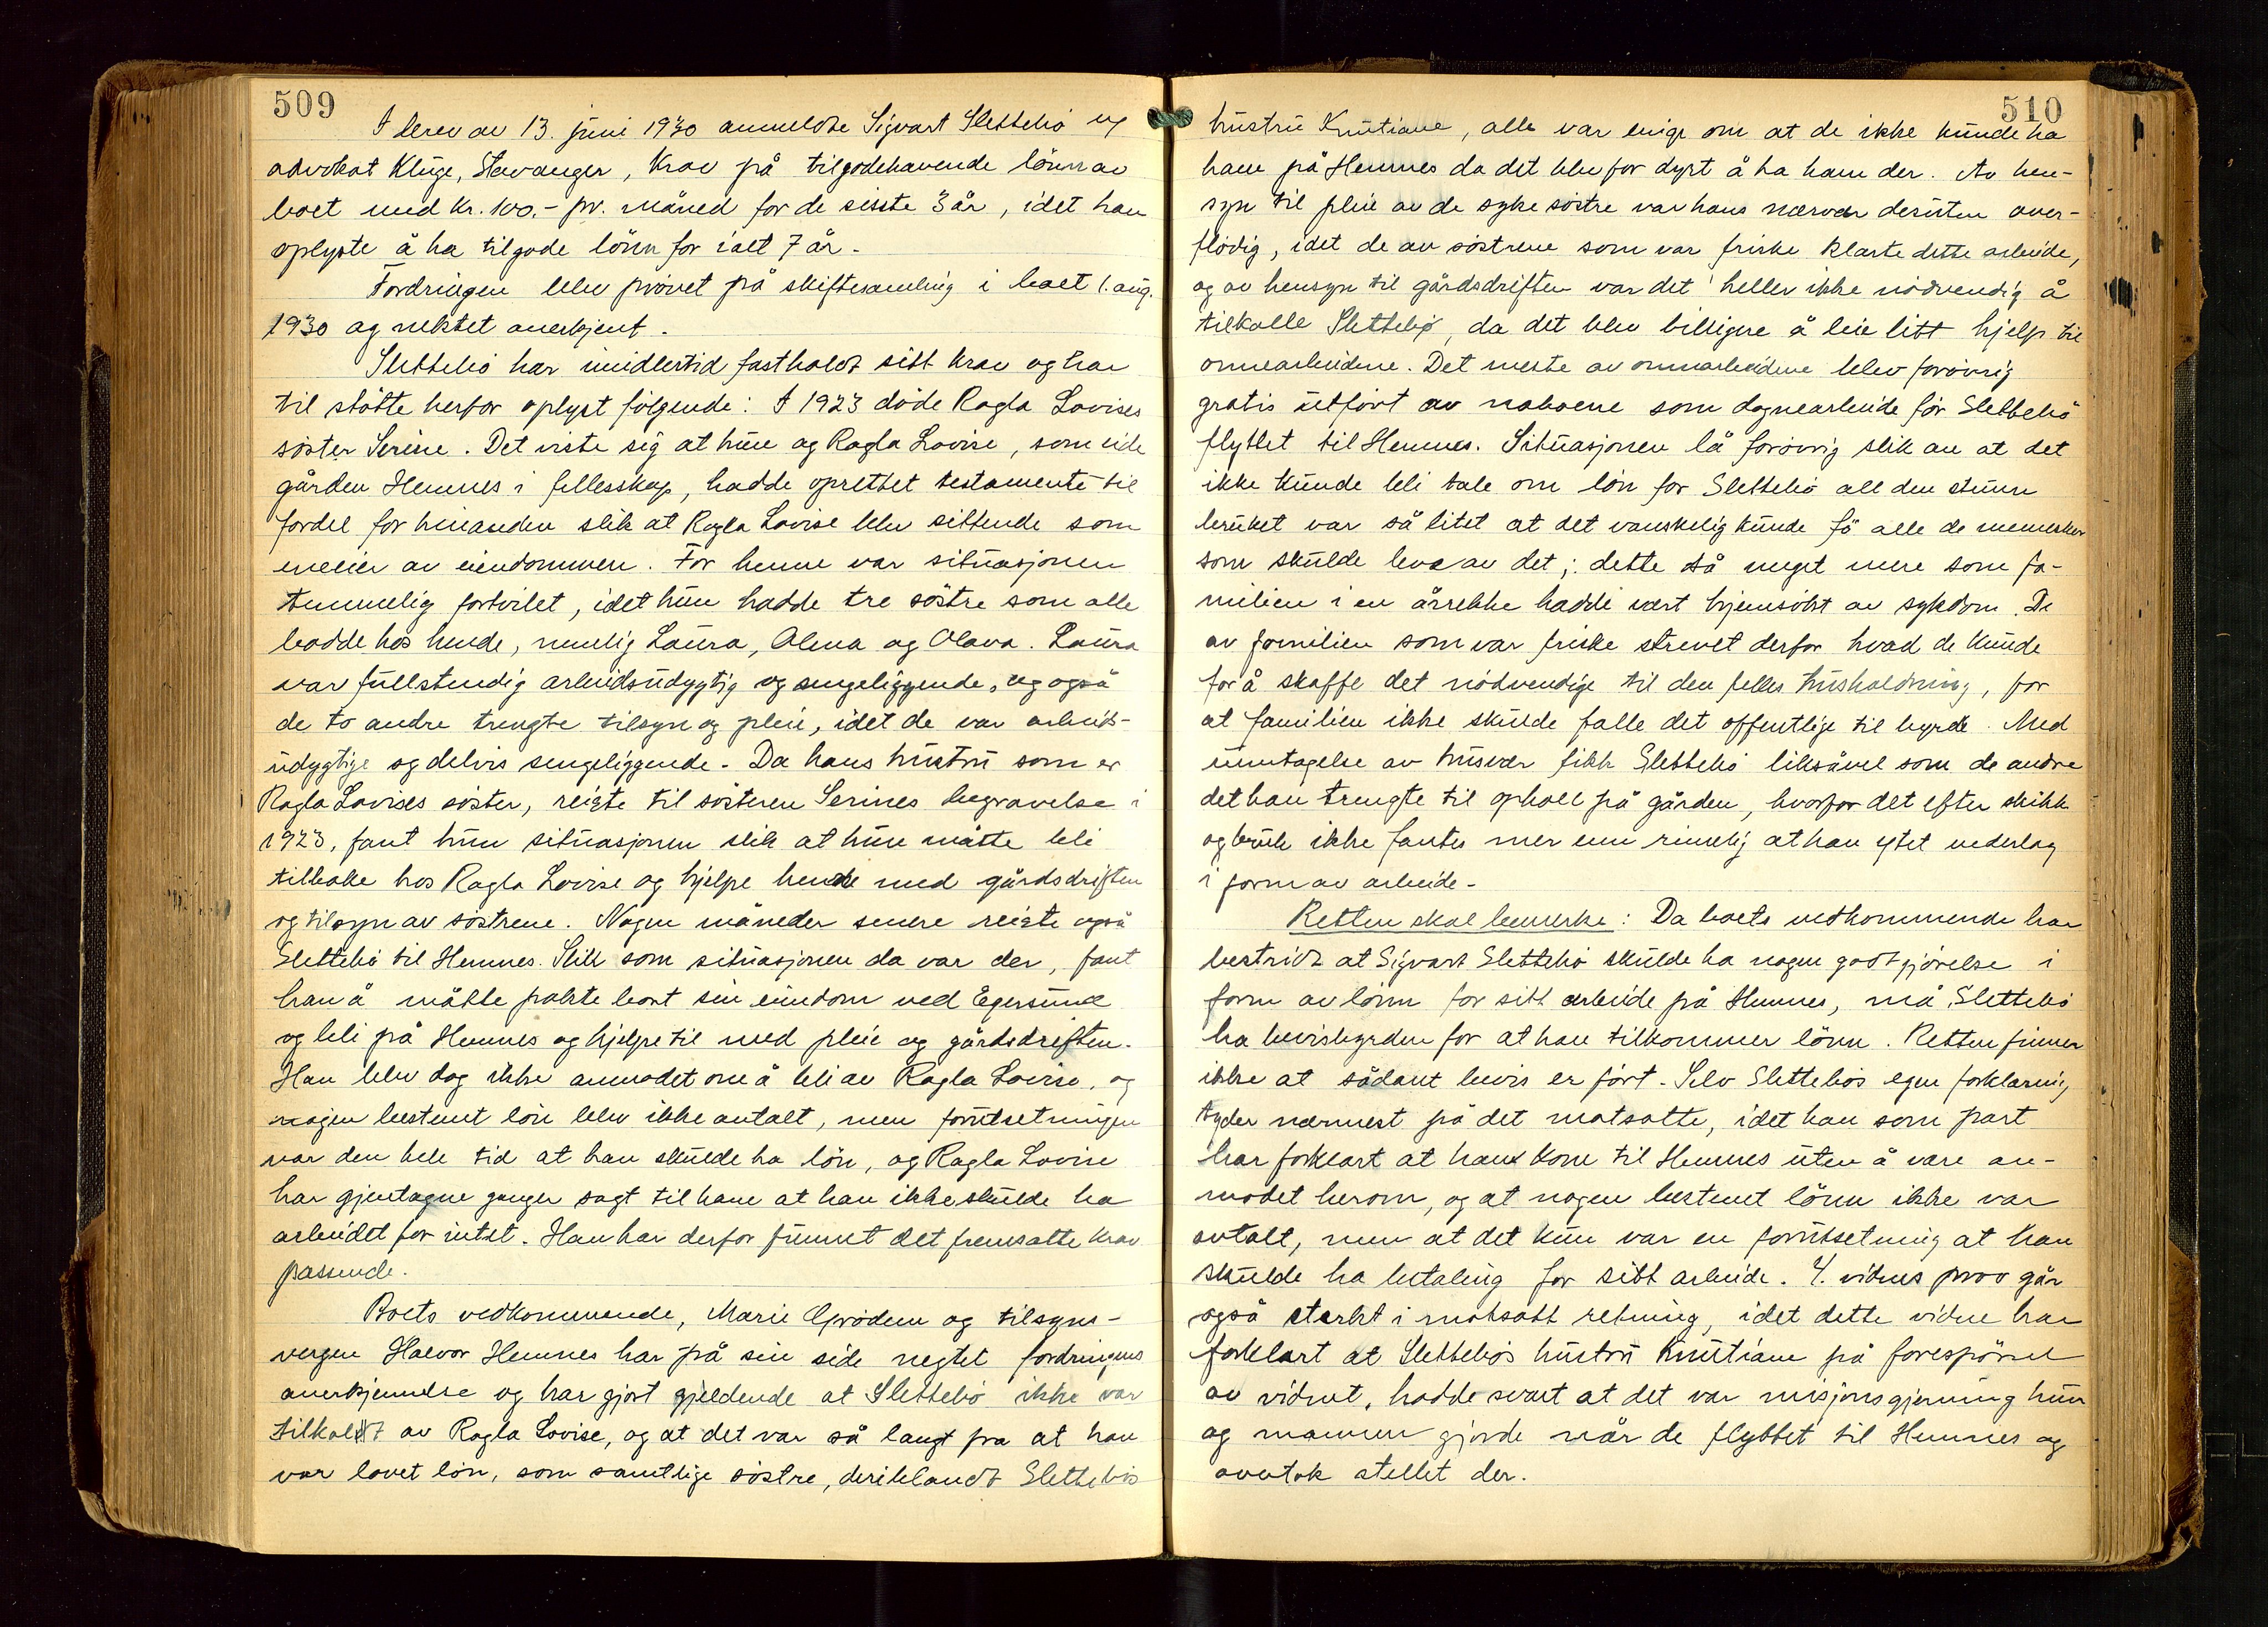 509
I brev av 13. juni 1930 anmeldte Sigvart Slettebö ved
advokat Kluge, Stavanger, krav på tilgodehavende lönn av
boet med kr. 100.- pr. måned for de sisste 3 år, idet han
oplyste å ha tilgode lönn for ialt 7 år.
Fordringen blev prövet på skiftesamling i boet 1. aug.
1930 og nektet anerkjent.
Slettebö har imidlertid fastholdt sitt krav og har
til stötte herfor oplyst fölgende: I 1923 döde Ragla Lovises
söster Serine. Det viste sig at hun og Ragla Lovise, som eide
gården Hemnes i fellesskap, hadde oprettet testamente til
fordel for hinanden slik at Ragla Lovise blev sittende som
eneeier av eiendommen. For henne var situasjonen
temmelig fortvilet, idet hun hadde tre söstre som alle
bodde hos hende, nemlig Laura, Alena og Olava. Laura
var fullstendig arbeidsudygtig og sengeliggende, og også
de to andre trengte tilsyn og pleie, idet de var arbeids-
udygtige og delvis sengeliggende. Da hans hustru som er
Ragla Lovises söster, reiste til sösteren Serines begravelse i
1923, fant hun situasjonen slik at hun måtte bli
tilbake hos Ragla Lovise og hjelpe hende med gårdsdriften
og tilsyn av söstrene. Nogen måneder senere reiste også
Slettebö til Hemnes. Slik som situasjonen da var der, fant
han å måtte pakte bort sin eiendom ved Egersund
og bli på Hemnes og hjelpe til med pleie og gårdsdriften.
Han blev dog ikke anmodet om å bli av Ragla Lovise, og
nogen bestemt lön blev ikke avtalt, men forutsetningen
var den hele tid at han skulde ha lön, og Ragla Lovise
har gjentagne ganger sagt til ham at han ikke skulde ha
arbeidet for intet. Han har derfor funnet det fremsatte krav
passende.
Boets vedkommende, Marie Gprödem og tilsyns-
vergen Halvor Hemnes har på sin side negtet fordringens
anerkjennelse og har gjort gjeldende at Slettebö ikke var
tilkaldt av Ragla Lovise, og at det var så langt fra at han
var lovet lön, som samtlige söstre, deriblandt Slettebös
510
hustru Knutiane, alle var enige om at de ikke kunde ha
ham på Hemnes da det blev for dyrt å ha ham der. Av hen-
syn til pleie av de syke söstre var hans nærvær desuten over-
flödig, idet de av söstrene som var friske klarte dette arbeide,
og av hensyn til gårdsdriften var det heller ikke nödvendig å
tilkalle Slettebö, da det blev billigere å leie litt hjelp til
onnearbeidene. Det meste av onnearbeidene blev forövrig
gratis utfört av naboene som dognearbeide för Slettebö
flyttet til Hemnes. Situasjonen lå forövrig slik an at det
ikke kunde bli tale om lön for Slettebö all den stunn
bruket var så litet at det vanskelig kunde fö alle de mennesker
som skulde leve av det; dette så meget mere som fa-
milien i en årrekke hadde vært hjemsökt av sykdom. De
av familien som var friske strevet derfor hvad de kunde
for å skaffe det nödvendige til den felles husholdning, for
at familien ikke skulde falle det offentlige til byrde. Med
unntagelse av husvær fikk Slettebö liksåvel som de andre
det han trengte til ophold på gården, hvorfor det efter skikk
og bruk ikke fantes mer enn rimelig at han ytet vederlag
i form av arbeide.
Retten skal bemerke: Da boets vedkommende har
bestridt at Sigvart Slettebö skulde ha nogen godtgjörelse i
form av lönn for sitt arbeide på Hemnes, må Slettebö
ha bevisbyrden for at han tilkommer lönn. Retten finner
ikke at sådant bevis er fört. Selv Slettebös egen forklaring
tyder nærmest på det motsatte, idet han som part
har forklart at han kom til Hemnes uten å være an-
modet herom, og at nogen bestemt lönn ikke var
avtalt, men at det kun var en forutsetning at han
skulde ha betaling for sitt arbeide. 4. vidnes prov går
også sterkt i motsatt retning, idet dette vidne har
forklart at Slettebös hustru Knutiane på forespörsel
av vidnet, hadde svart at det var misjonsgjerning hun
og mannen gjorde når de flyttet til Hemnes og
overtok stellet der.